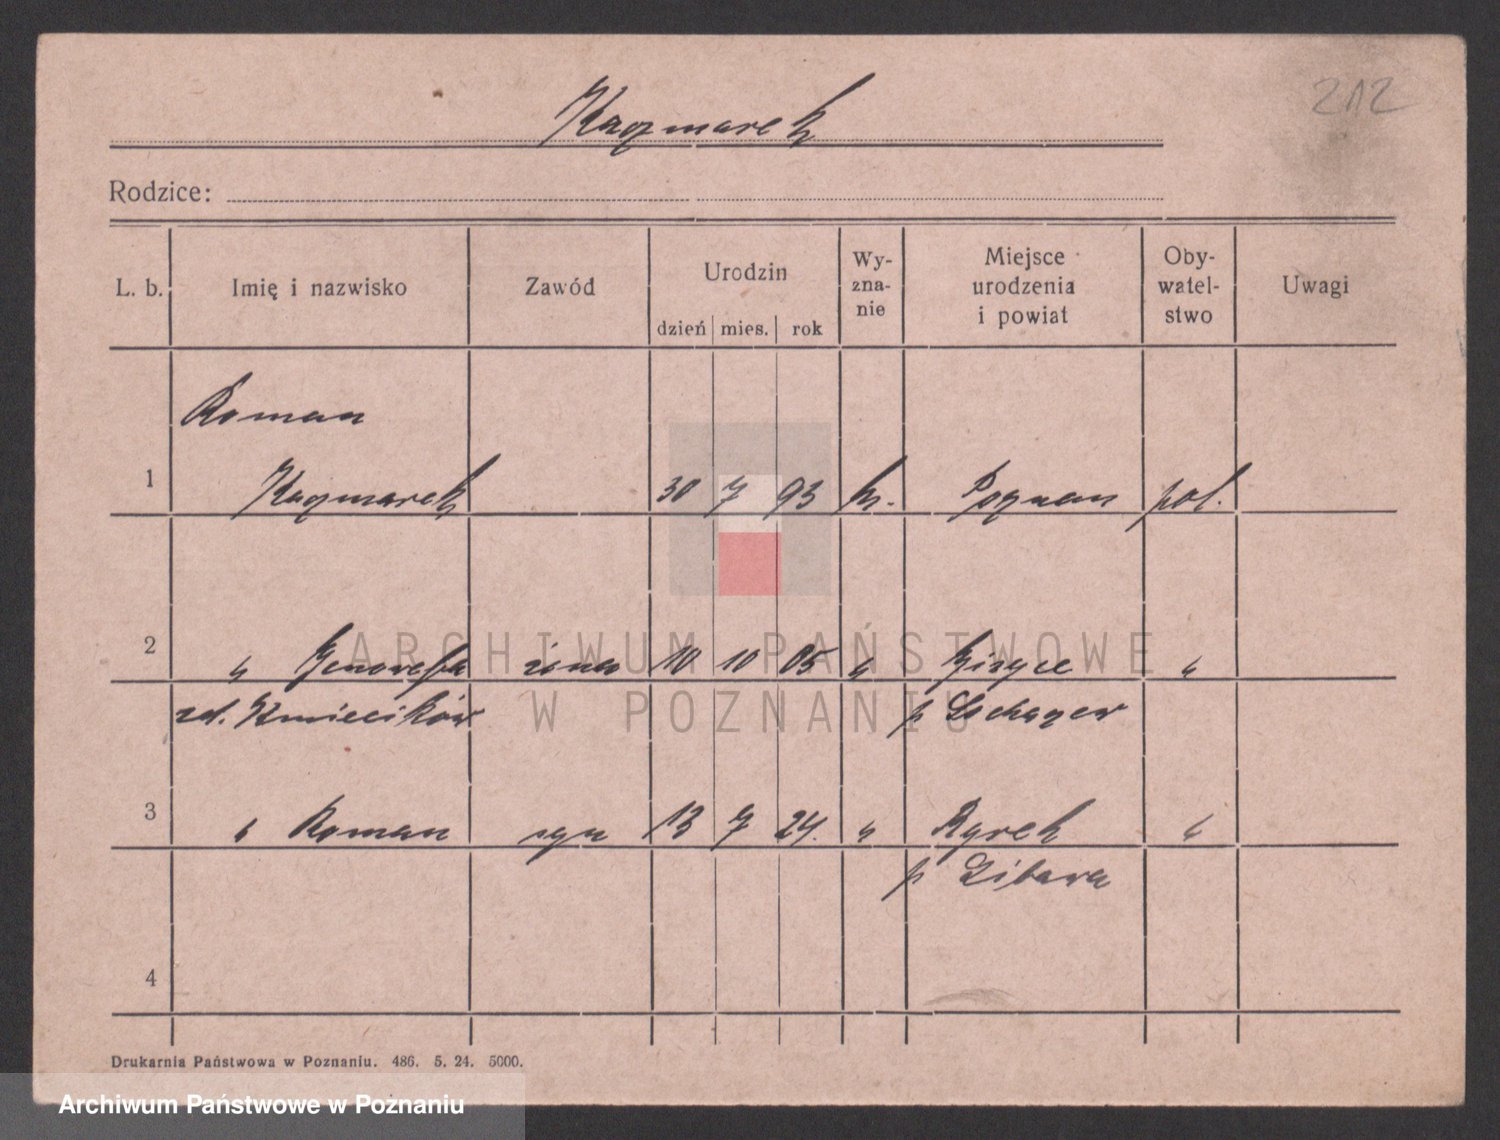 212
Kaczmarek
Rodzice:
L. b. Imię i nazwisko Zawód Urodzin dzień mies. rok Wy-zna-nie Miejsce urodzenia i powiat Oby-watel-stwo Uwagi
Roman
1 Kaczmarek 30 7 93 kr. Poznan pol.
2 " Genowefa żona 10 10 05 "
zd. Kmiecików p
3 " Roman syn 13 7 24. " "
p
4
Drukarnia Państwowa w Poznaniu. 486. 5. 24. 5000.
ARCHIWUM PAŃSTWOWE
W POZNANIU
Archiwum Państwowe w Poznaniu